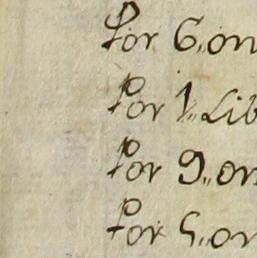 Por 6,, on
Por 1,, Lib
Por 9,, on
Por 5,, on